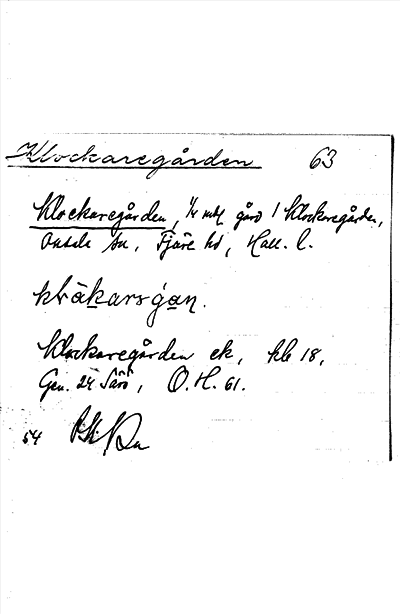 Klockaregården 63
Klockaregården, 1/4 mtl gård i Klockaregården,
Onsala sn, Fjäre hd, Hall. l.
Klockaregården ek, kbl 18,
Gen. 24 Särö, O.H. 61.
54